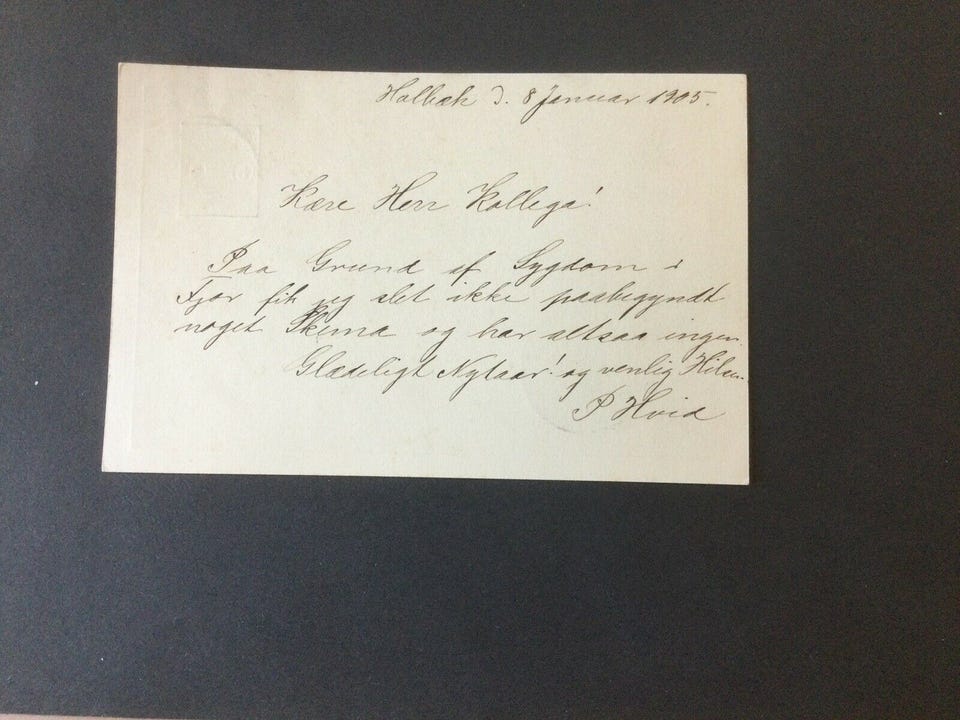 Holbæk d. 8 Januar 1905.
Kære Herr Kollega!
Paa Grund af Sygdom i
Fjor fik jeg slet ikke paabegyndt
noget Skema og har altsaa ingen.
Glædeligt Nytaar! og venlig Hilsen
P Hvid